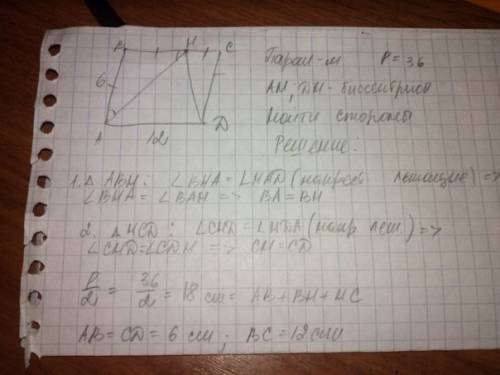 B H C
6
A 12 D
Парал-м P = 36
AH, DH - биссектрисы
Найти стороны
Решение:
1. △ ABH: ∠BHA = ∠HAD (накрест лежащие) =>
∠BHA = ∠BAH => BA = BH
2. △ HCD: ∠CHD = ∠HDA (накр леж.) =>
∠CHD = ∠CDH => CH = CD
P/2 = 36/2 = 18 см = AB + BH + HC
AB = CD = 6 см; BC = 12 см